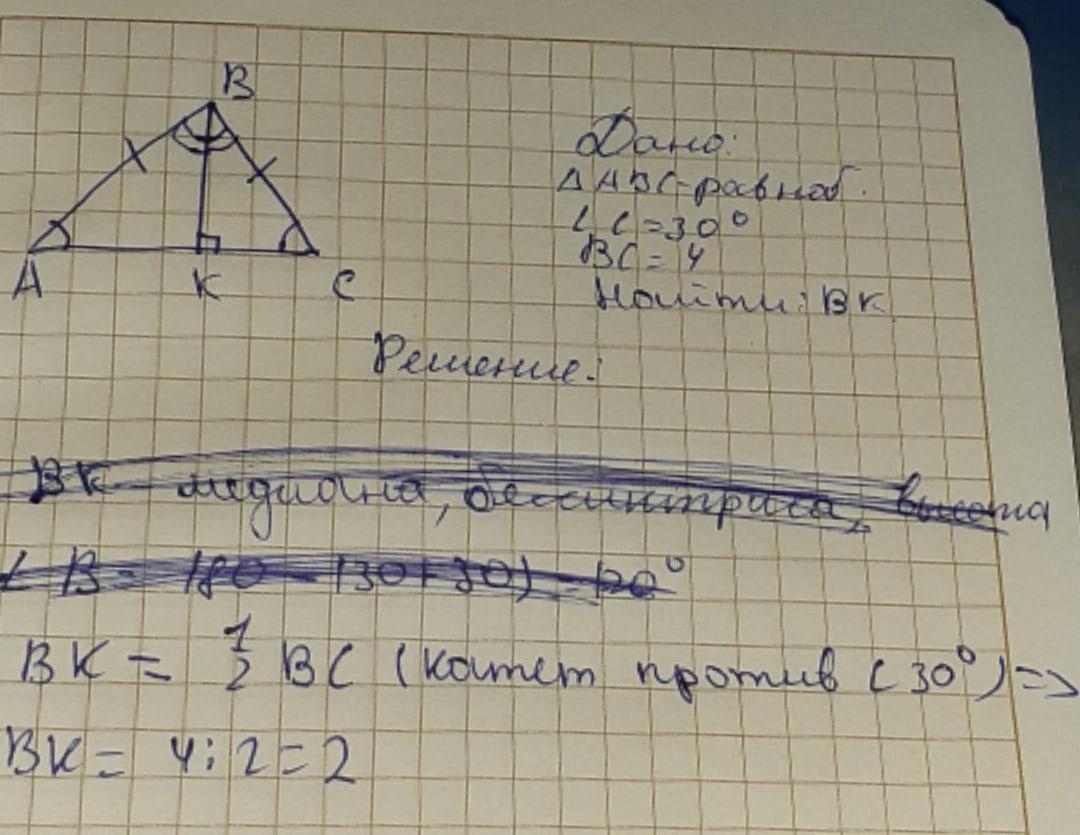 B
A K C
Дано:
Δ ABC-равноб.
∠ C = 30°
BC = 4
Найти: BK
Решение:
BK - медиана, бессинтриса, высота
∠ B = 180 - (30+30) = 120°
BK = 1/2 BC (катет против ∠ 30°) =>
BK = 4:2=2